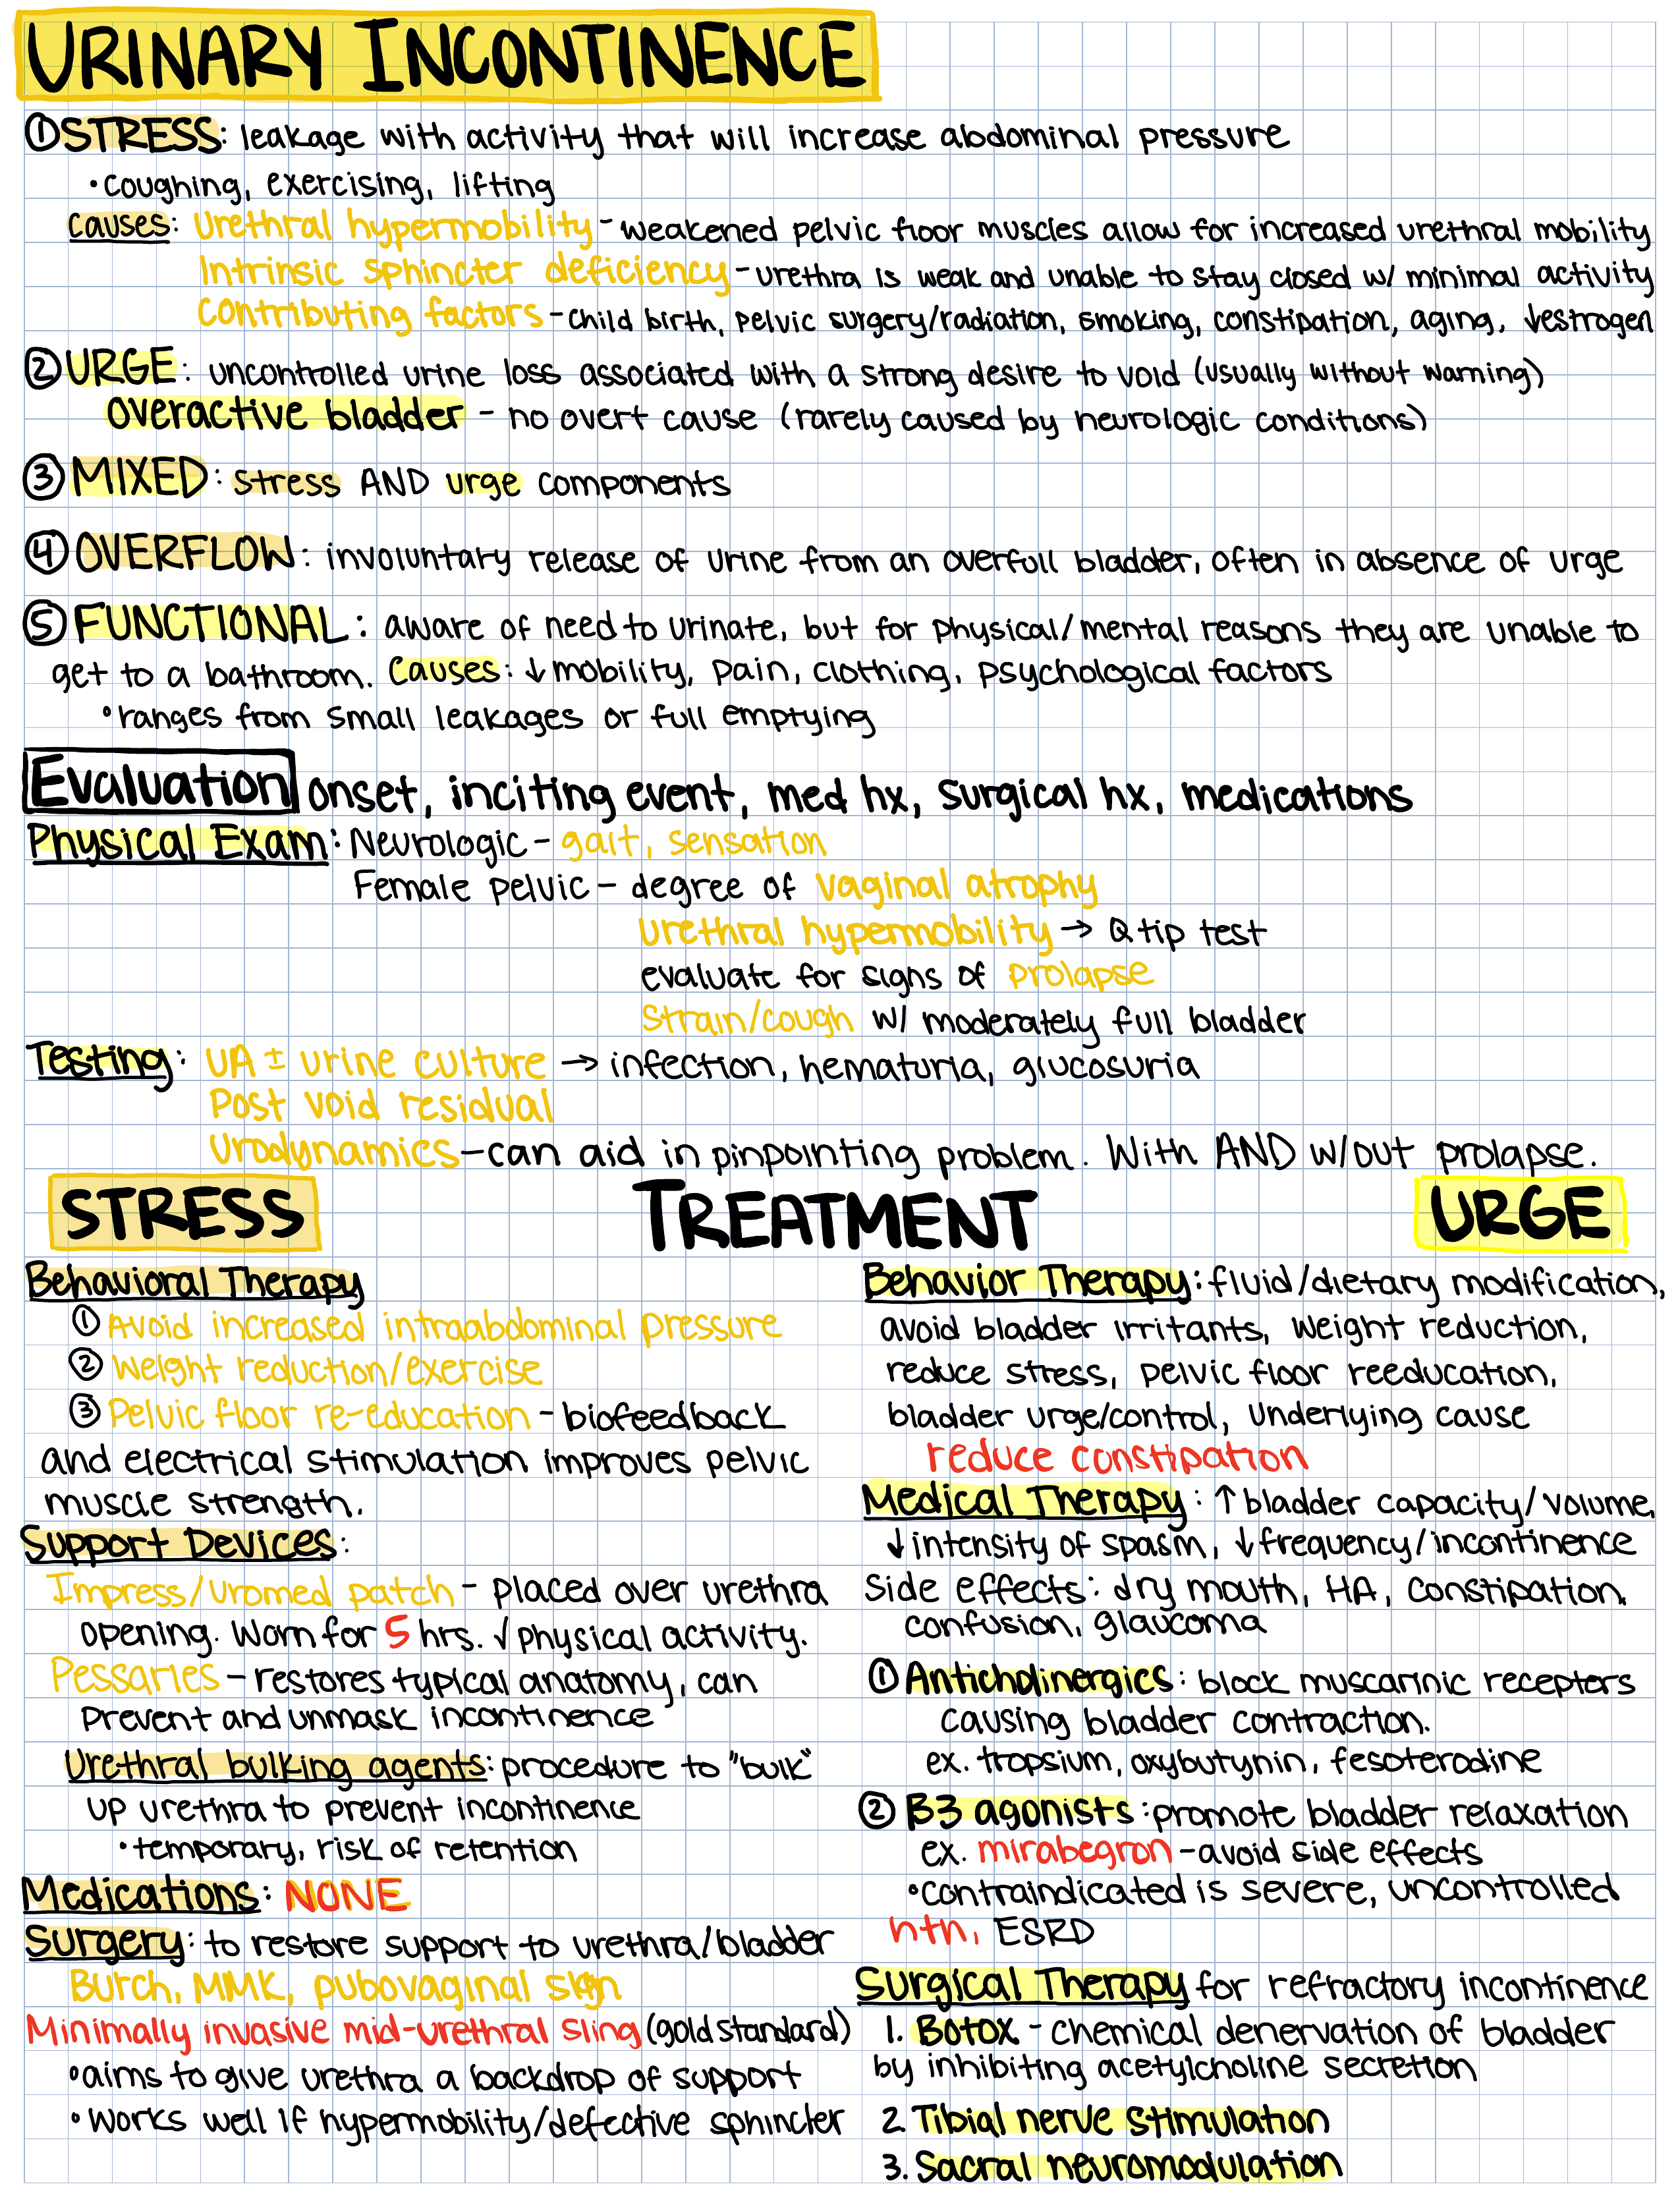 URINARY INCONTINENCE
① STRESS: leakage with activity that will increase abdominal pressure
• coughing, exercising, lifting
causes: Urethral hypermobility - weakened pelvic floor muscles allow for increased urethral mobility
Intrinsic sphincter deficiency - urethra is weak and unable to stay closed w/ minimal activity
contributing factors - child birth, pelvic surgery/radiation, smoking, constipation, aging, ↓estrogen
② URGE: uncontrolled urine loss associated with a strong desire to void (usually without warning)
overactive bladder - no overt cause (rarely caused by neurologic conditions)
③ MIXED: stress AND urge components
④ OVERFLOW: involuntary release of urine from an overfull bladder, often in absence of urge
⑤ FUNCTIONAL: aware of need to urinate, but for physical/mental reasons they are unable to
get to a bathroom. Causes: ↓ mobility, pain, clothing, psychological factors
• ranges from small leakages or full emptying
Evaluation onset, inciting event, med hx, surgical hx, medications
Physical Exam: Neurologic - gait, sensation
Female pelvic - degree of vaginal atrophy
urethral hypermobility → Q tip test
evaluate for signs of prolapse
Strain/cough w/ moderately full bladder
Testing: UA ± urine culture → infection, hematuria, glucosuria
Post void residual
Urodynamics - can aid in pinpointing problem. With AND w/out prolapse.
STRESS TREATMENT URGE
Behavioral Therapy
① Avoid increased intraabdominal pressure
② Weight reduction/exercise
③ Pelvic floor re-education - biofeedback
and electrical stimulation improves pelvic
muscle strength.
Support Devices:
Impress/Uromed patch - placed over urethra
opening. Worn for 5 hrs. √ physical activity.
Pessaries - restores typical anatomy, can
prevent and unmask incontinence
Urethral bulking agents: procedure to "bulk"
up urethra to prevent incontinence
• temporary, risk of retention
Medications: NONE
Surgery: to restore support to urethra/bladder
Burch, MMK, pubovaginal
Minimally invasive mid-urethral sling (gold standard)
• aims to give urethra a backdrop of support
• works well if hypermobility/defective sphincter
Behavior Therapy: fluid/dietary modification,
avoid bladder irritants, weight reduction,
reduce stress, pelvic floor reeducation,
bladder urge/control, underlying cause
reduce constipation
Medical Therapy: ↑ bladder capacity/volume,
↓ intensity of spasm, ↓ frequency/incontinence
Side effects: dry mouth, HA, constipation,
confusion, glaucoma
① Anticholinergics: block muscarinic receptors
causing bladder contraction.
ex. tropsium, oxybutynin, fesoterodine
② B3 agonists: promote bladder relaxation
ex. mirabegron - avoid side effects
• contraindicated is severe, uncontrolled
htn, ESRD
Surgical Therapy for refractory incontinence
1. Botox - chemical denervation of bladder
by inhibiting acetylcholine secretion
2. Tibial nerve stimulation
3. Sacral neuromodulation